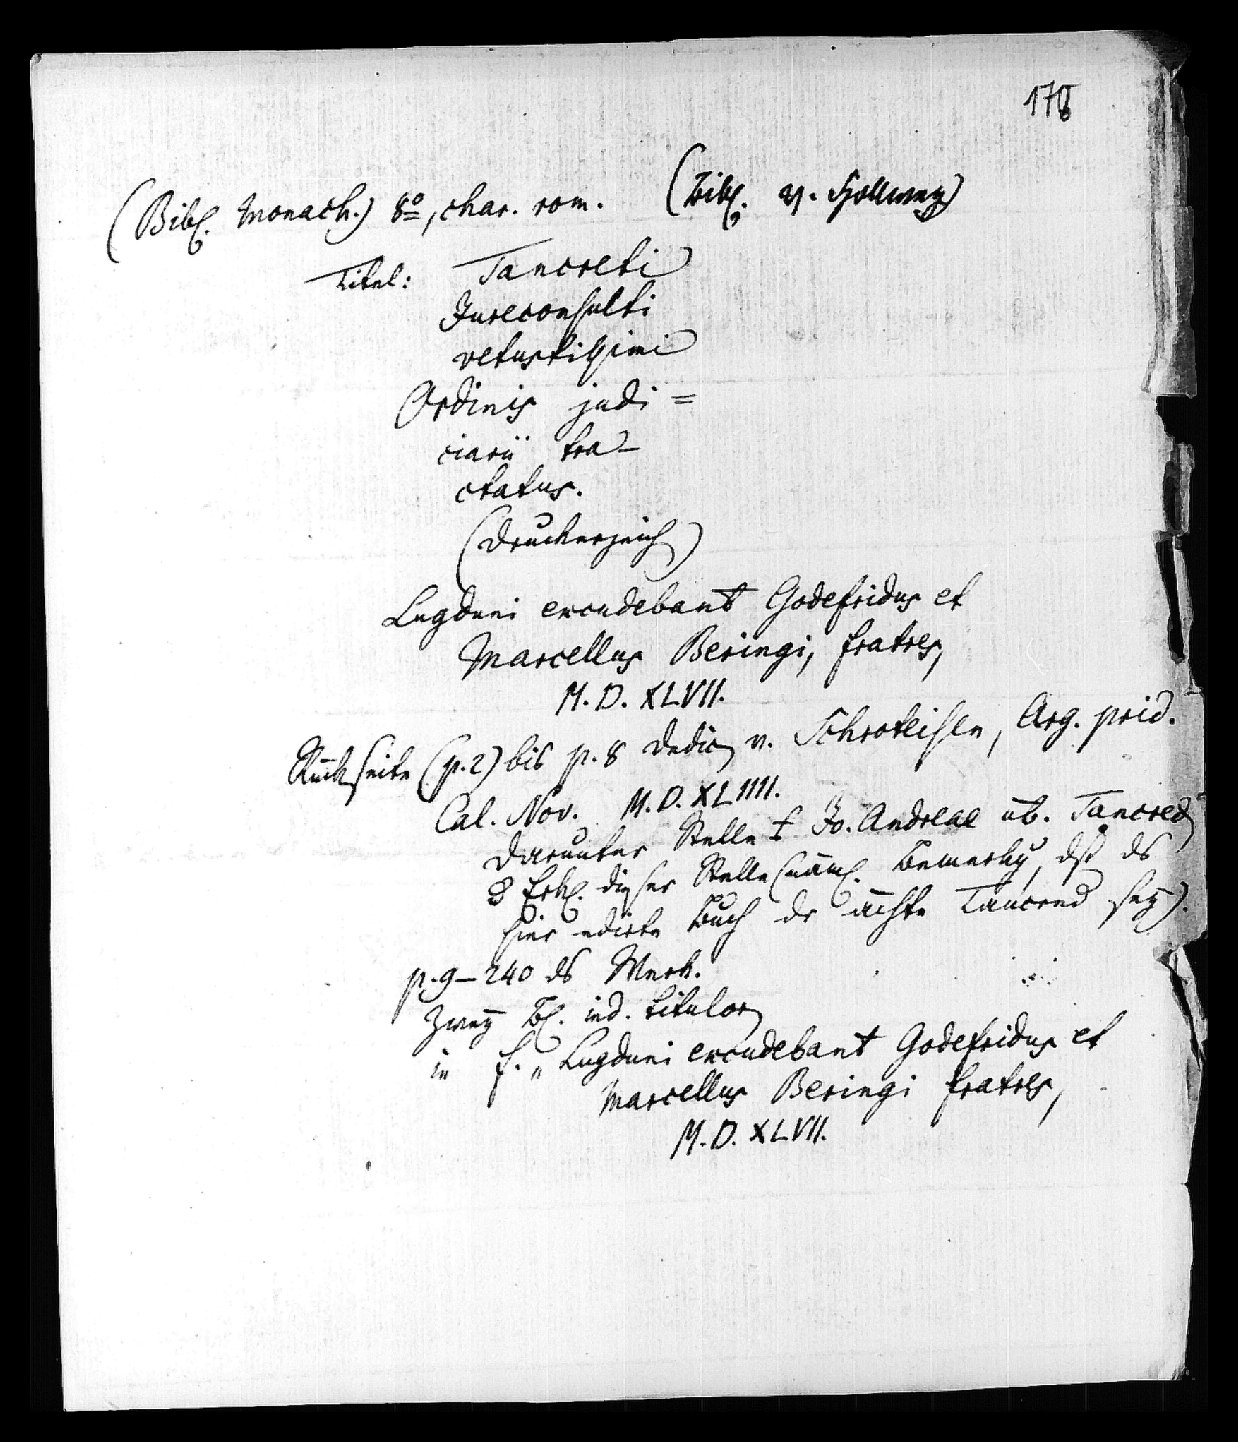 178
(Bibl. Monach.) 8º, char. rom. (Bibl. v.
Titel: Tancreti
Jureconsulti
vetustissimi
Ordinis judi=
ciarii tra-
ctatus.
(Druckerzeich)
Lugduni excudebant Godefridus et
Marcellus Beringi, fratres,
M.D.XLVII.
Rückseite (p.2) bis p.8 Dedic v. Schroteisen, Arg. prid.
Cal. Nov. M.D.XLIIII.
Darunter Stelle Jo. Andreae üb. Tancred
dieser Stelle (näml. Bemerkg, dß ds
hier edirte Buch der ächte Tancred sey).
p.9-240 ds Werk.
Zwey Bl. ind. titulor
in f. „Lugduni excudebant Godefridus et
Marcellus Beringi fratres,
M.D.XLVII.